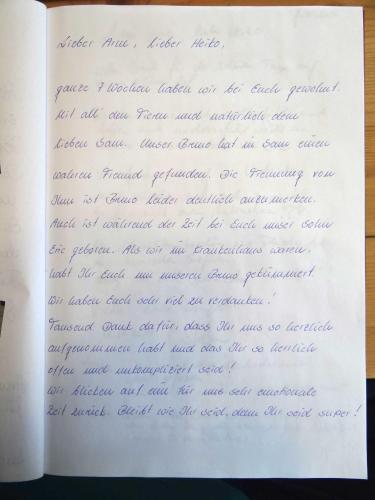 Lieber Arne, Lieber Heiko,
ganze 7 Wochen haben wir bei Euch gewohnt.
Mit all' den Tieren und natürlich dem
lieben Sam. Unser Bruno hat in Sam einen
wahren Freund gefunden. Die Trennung von
Ihm ist Bruno leider deutlich anzumerken.
Auch ist während der Zeit bei Euch unser Sohn
Eric geboren. Als wir im Krankenhaus waren,
habt Ihr Euch um unseren Bruno gekümmert.
Wir haben Euch sehr viel zu verdanken!
Tausend Dank dafür, dass Ihr uns so herzlich
aufgenommen habt und das Ihr so herrlich
offen und unkompliziert seid!
Wir blicken auf eine für uns sehr emotionale
Zeit zurück. Bleibt wie Ihr seid, denn Ihr seid super!